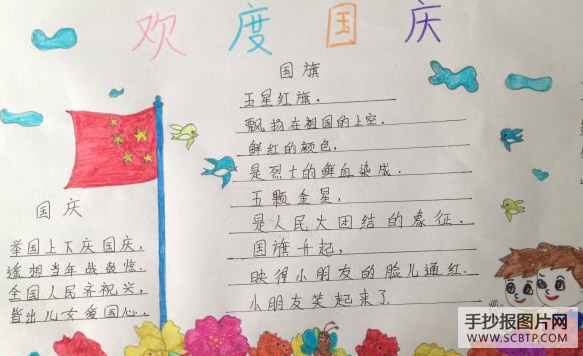 欢度国庆
国旗
五星红旗，
飘扬在祖国的上空，
鲜红的颜色，
是烈士的鲜血染成，
五颗金星，
是人民大团结的象征，
国旗升起，
映得小朋友的脸儿通红，
小朋友笑起来了
国庆
举国上下庆国庆，
遥想当年战鼓惊，
全国人民齐祝兴，
皆出儿女爱国心，
手抄报图片网
WWW.SCBTP.COM